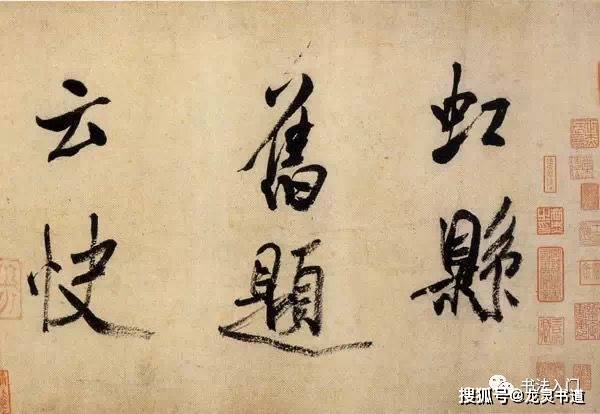 虹縣
舊題
云快
书法入门
搜狐号@龙灵书道